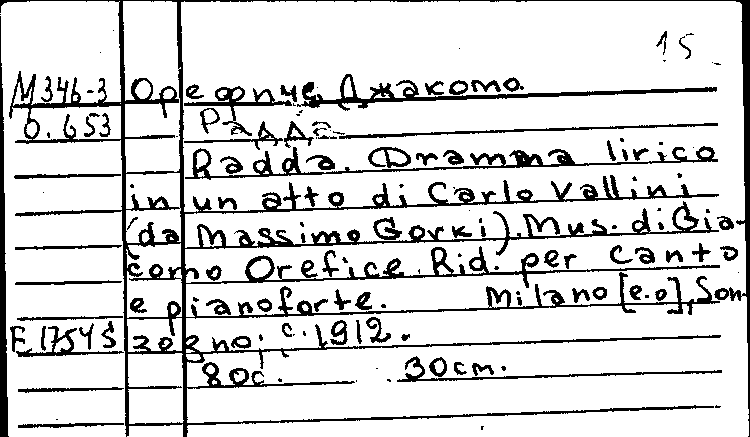 15
M346-3 Орефиче, Джакомо.
0.653 Радда
Radda. Dramma lirico
in un atto di Carlo Vallini
(da Massimo Gorki). Mus. di Gia-
como Orefice. Rid. per canto
e pianoforte. Milano [e.o], Son-
E1754S zogno; c. 1912.
80c. 30cm.